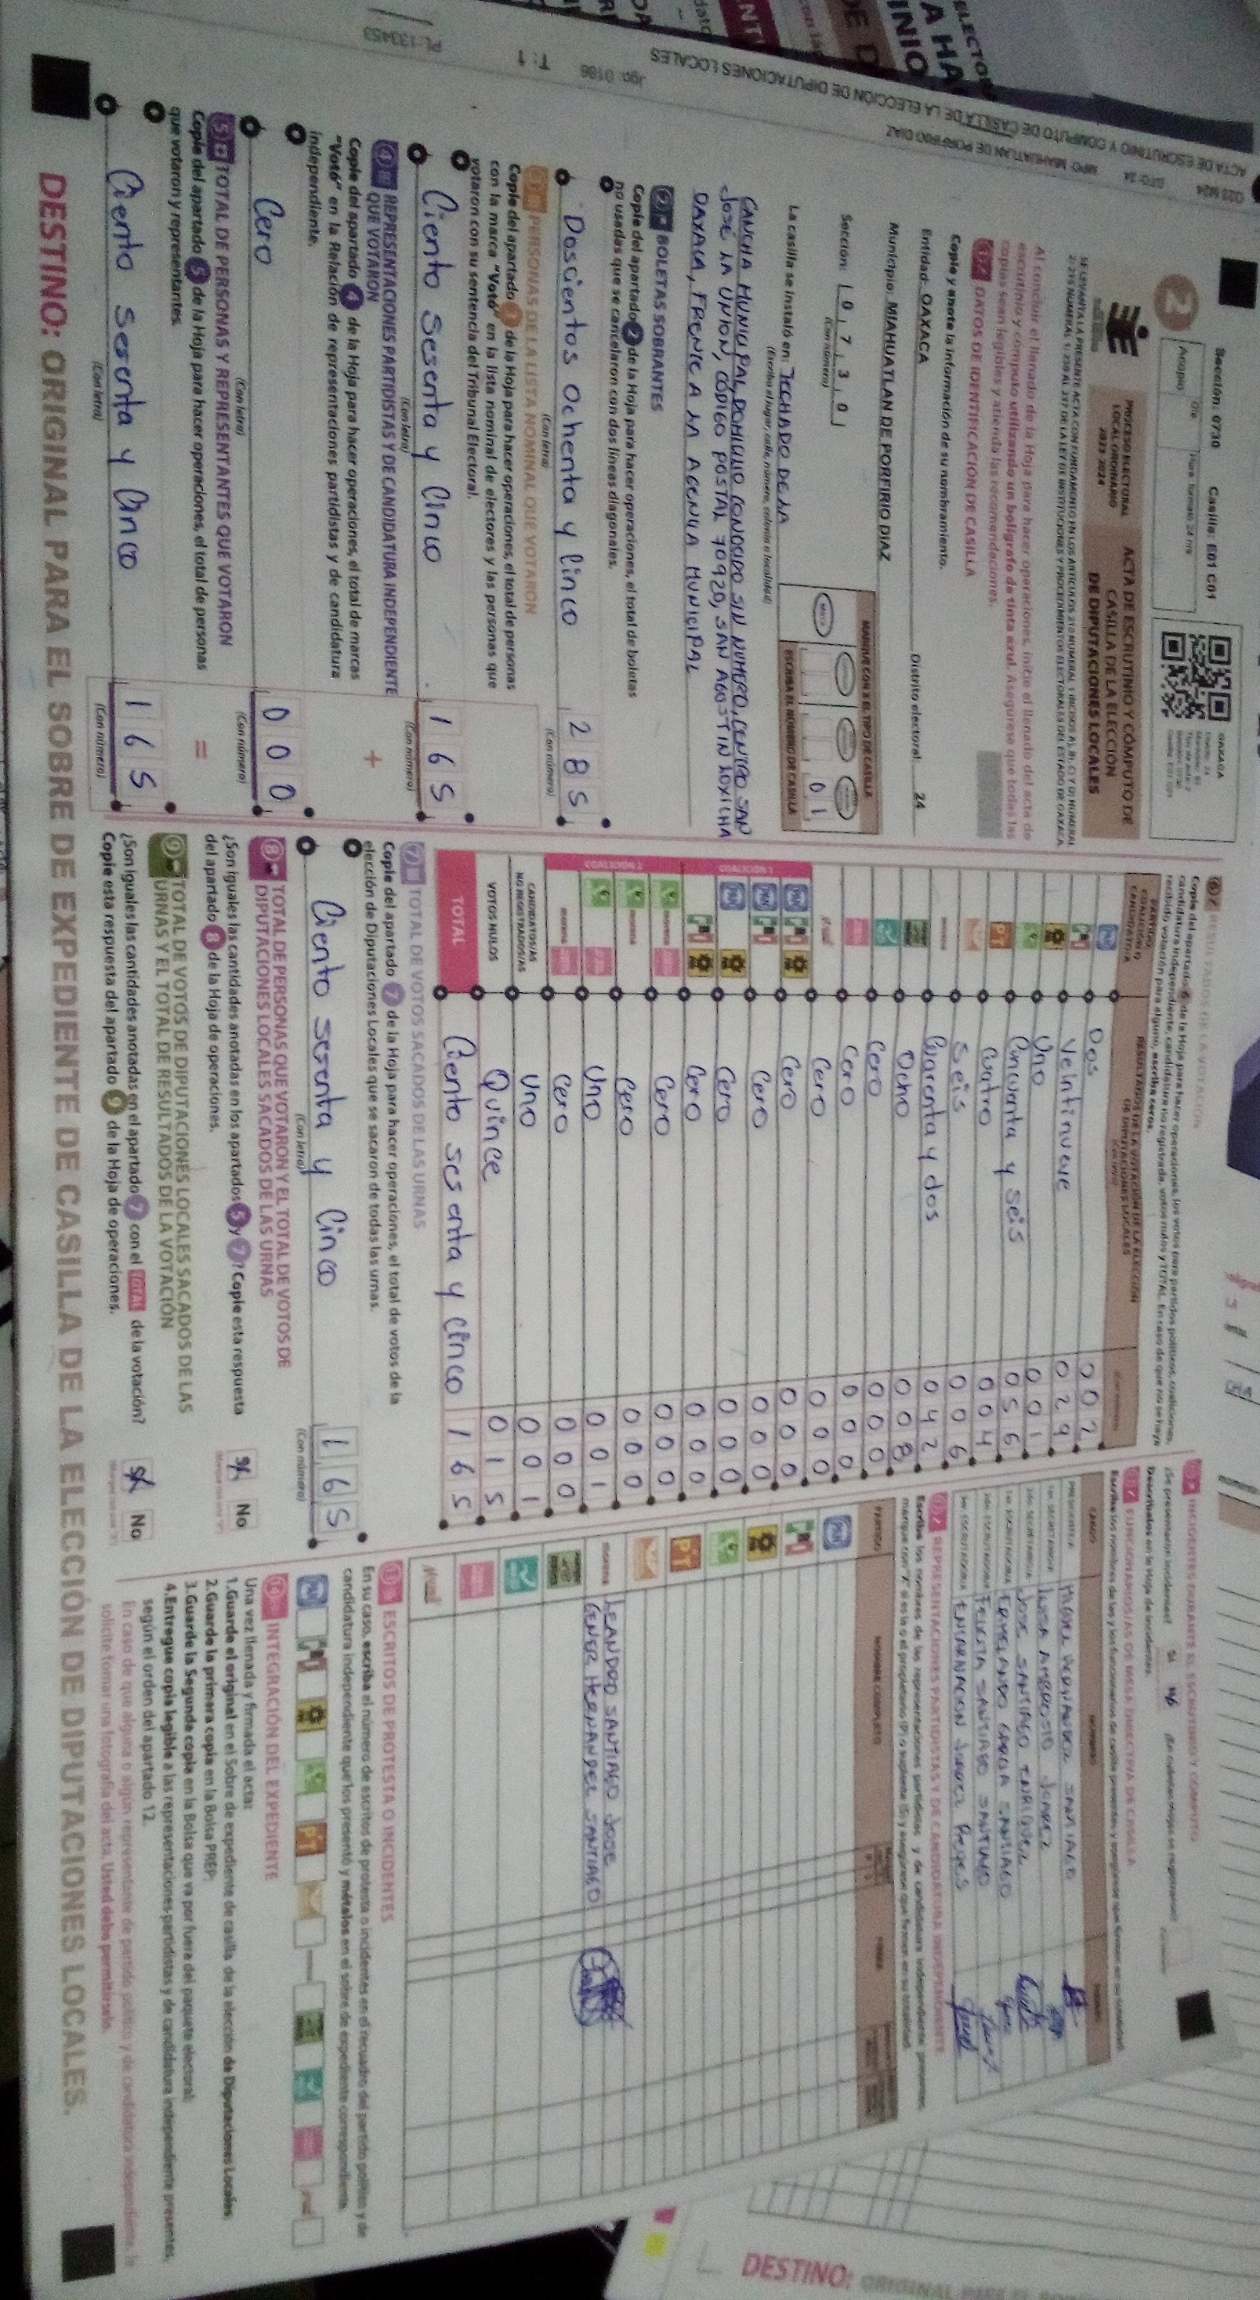 Sección: 0730 Casilla: E01 C01
OAXACA
2
Acopio
PROCESO ELECTORAL
LOCAL ORDINARIO
2023-2024
ACTA DE ESCRUTINIO Y CÓMPUTO DE
CASILLA DE LA ELECCIÓN
DE DIPUTACIONES LOCALES
Al concluir el llenado de la Hoja para hacer operaciones, inicie el llenado del acta de
escrutinio y cómputo utilizando un bolígrafo de tinta azul. Asegúrese que todas las
copias sean legibles y atienda las recomendaciones.
1 DATOS DE IDENTIFICACIÓN DE CASILLA
Copie y anote la información de su nombramiento.
Entidad: OAXACA Distrito electoral: 24
Municipio: MIAHUATLAN DE PORFIRIO DIAZ
Sección: 0730
(Con número)
MARQUE CON X EL TIPO DE CASILLA
01
ESCRIBA EL NÚMERO DE CASILLA
La casilla se instaló en: TECHADO DE LA
(Escriba el lugar, calle, número, colonia o localidad)
CANCHA MUNICIPAL, DOMICILIO CONOCIDO SIN NUMERO, CENTRO SAN
JOSÉ LA UNION, CÓDIGO POSTAL 70920, SAN AGOSTIN LOXICHA
OAXACA, FRENTE A LA AGENCIA MUNICIPAL
2 BOLETAS SOBRANTES
Copie del apartado 2 de la Hoja para hacer operaciones, el total de boletas
no usadas que se cancelaron con dos líneas diagonales.
Doscientos Ochenta y Cinco 285
(Con letra) (Con número)
3 PERSONAS DE LA LISTA NOMINAL QUE VOTARON
Copie del apartado 3 de la Hoja para hacer operaciones, el total de personas
con la marca "Votó" en la lista nominal de electores y las personas que
votaron con su sentencia del Tribunal Electoral.
Ciento Sesenta y Cinco 165
(Con letra) (Con número)
4 REPRESENTACIONES PARTIDISTAS Y DE CANDIDATURA INDEPENDIENTE
QUE VOTARON
Copie del apartado 4 de la Hoja para hacer operaciones, el total de marcas
"Votó" en la Relación de representaciones partidistas y de candidatura
independiente.
+
Cero 000
(Con letra) (Con número)
5 TOTAL DE PERSONAS Y REPRESENTANTES QUE VOTARON
Copie del apartado 5 de la Hoja para hacer operaciones, el total de personas
que votaron y representantes.
=
Ciento Sesenta y Cinco 165
(Con letra) (Con número)
6 RESULTADOS DE LA VOTACIÓN
Copie del apartado 6 de la Hoja para hacer operaciones, los votos para partidos políticos, coaliciones,
candidatura independiente, candidatura no registrada, votos nulos y TOTAL. En caso de que no se haya
recibido votación para alguno, escriba ceros.
RESULTADOS DE LA VOTACIÓN DE LA ELECCIÓN
DE DIPUTACIONES LOCALES
Dos 002
Veintinueve 029
Uno 001
Cincuenta y seis 056
Cuatro 004
Seis 006
Cuarenta y dos 042
Ocho 008
Cero 000
Cero 000
Cero 000
COALICIÓN 1
Cero 000
Cero 000
Cero 000
Cero 000
COALICIÓN 2
Cero 000
Cero 000
Uno 001
Cero 000
CANDIDATOS/AS
NO REGISTRADOS/AS
Uno 001
VOTOS NULOS Quince 015
TOTAL Ciento sesenta y cinco 165
7 TOTAL DE VOTOS SACADOS DE LAS URNAS
Copie del apartado 7 de la Hoja para hacer operaciones, el total de votos de la
elección de Diputaciones Locales que se sacaron de todas las urnas.
Ciento sesenta y Cinco 165
(Con letra) (Con número)
8 TOTAL DE PERSONAS QUE VOTARON Y EL TOTAL DE VOTOS DE
DIPUTACIONES LOCALES SACADOS DE LAS URNAS
¿Son iguales las cantidades anotadas en los apartados 5 y 7? Copie esta respuesta
del apartado 8 de la Hoja de operaciones.
Sí No
9 TOTAL DE VOTOS DE DIPUTACIONES LOCALES SACADOS DE LAS
URNAS Y EL TOTAL DE RESULTADOS DE LA VOTACIÓN
¿Son iguales las cantidades anotadas en el apartado 7 con el TOTAL de la votación?
Copie esta respuesta del apartado 9 de la Hoja de operaciones.
Sí No
INCIDENTES DURANTE EL ESCRUTINIO Y CÓMPUTO
¿Se presentaron incidentes? Sí No
Descríbalos en la Hoja de incidentes.
FUNCIONARIOS/AS DE MESA DIRECTIVA DE CASILLA
LUISA AMBROSIO JUAREZ
JOSE SANTIAGO ENRIQUEZ
ERMELANDO GARCIA SANTIAGO
FELICITA SANTIAGO SANTIAGO
ENCARNACION JUAREZ Reyes
REPRESENTACIONES PARTIDISTAS Y DE CANDIDATURA INDEPENDIENTE
PARTIDO NOMBRE COMPLETO
LEANDRO SANTIAGO JOSE
GENER HERNANDEZ SANTIAGO
13 ESCRITOS DE PROTESTA O INCIDENTES
En su caso, escriba el número de escritos de protesta o incidentes en el recuadro del partido político y de
candidatura independiente que los presentó y métalos en el sobre de expediente correspondiente.
14 INTEGRACIÓN DEL EXPEDIENTE
Una vez llenada y firmada el acta:
1.Guarde el original en el Sobre de expediente de casilla de la elección de Diputaciones Locales
2.Guarde la primera copia en la Bolsa PREP.
3.Guarde la Segunda copia en la Bolsa que va por fuera del paquete electoral.
4.Entregue copia legible a las representaciones partidistas y de candidatura independiente presentes,
según el orden del apartado 12.
En caso de que alguna o algún representante de partido político y de candidatura independiente, le
solicite tomar una fotografía del acta. Usted debe permitírselo.
DESTINO: ORIGINAL PARA EL SOBRE DE EXPEDIENTE DE CASILLA DE LA ELECCIÓN DE DIPUTACIONES LOCALES.
ACTA DE ESCRUTINIO Y CÓMPUTO DE CASILLA DE LA ELECCIÓN DE DIPUTACIONES LOCALES
MPO: MIAHUATLAN DE PORFIRIO DIAZ
Jgo: 0186
T: 1
PL: 133453
DESTINO: